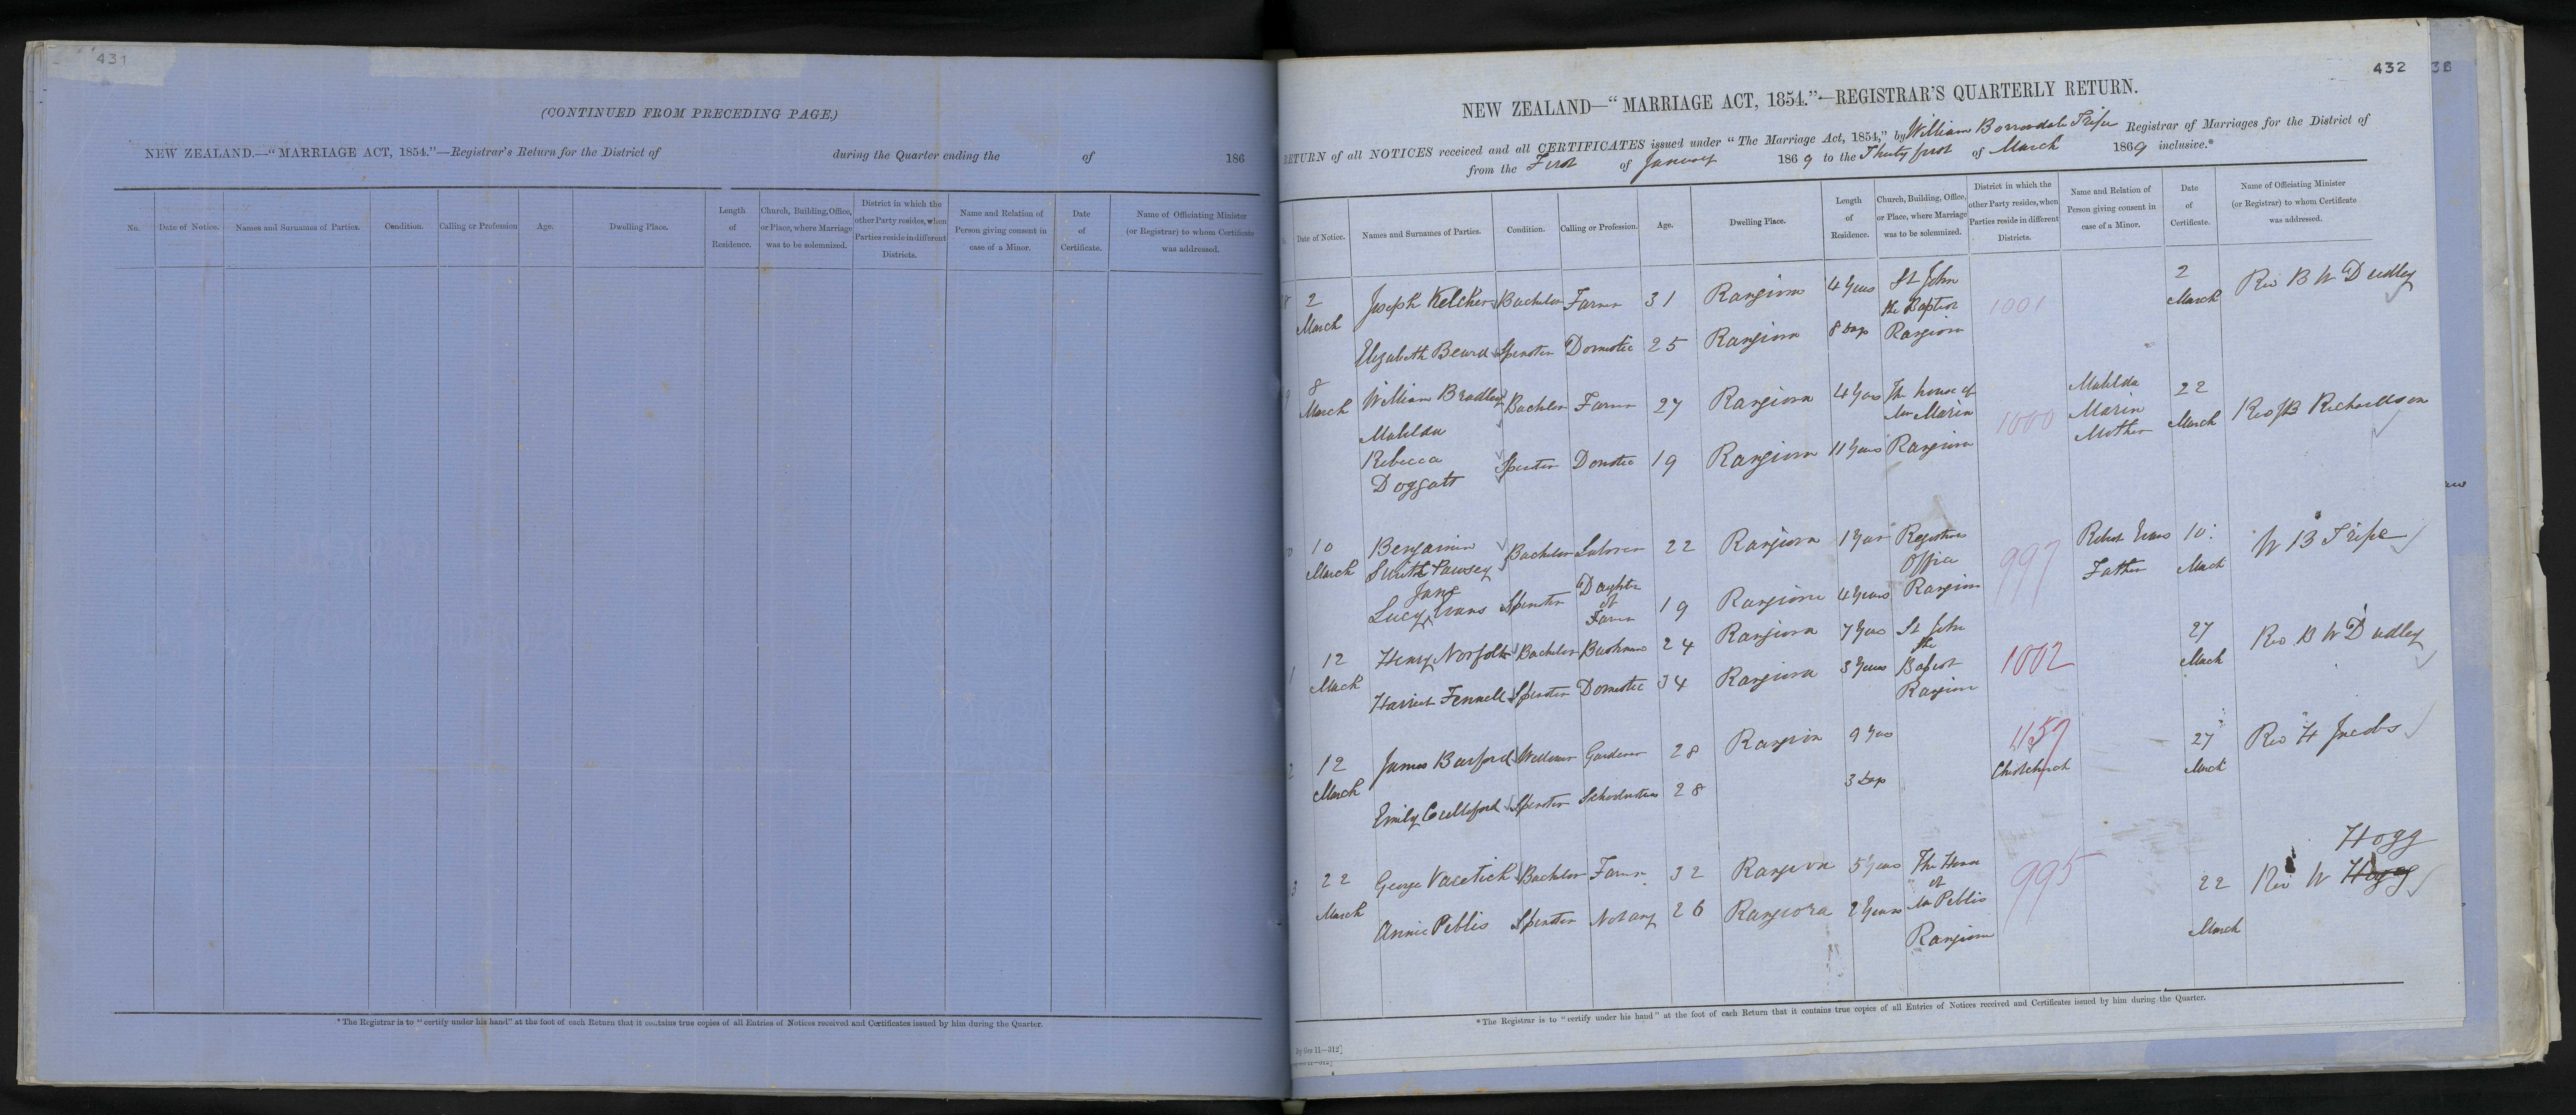 431
(CONTINUED FROM PRECEDING PAGE.)
NEW ZEALAND.—"MARRIAGE ACT, 1854."—Registrar's Return for the District of during the Quarter ending the of 186
No.
Date of Notice.
Names and Surnames of Parties.
Condition.
Calling or Profession
Age.
Dwelling Place.
Length
of
Residence.
Church, Building, Office,
or Place, where Marriage
was to be solemnized.
District in which the
other Party resides, when
Parties reside in different
Districts.
Name and Relation of
Person giving consent in
case of a Minor.
Date
of
Certificate.
Name of Officiating Minister
(or Registrar) to whom Certificate
was addressed.
*The Registrar is to "certify under his hand" at the foot of each Return that it contains true copies of all Entries of Notices received and Certificates issued by him during the Quarter.
432
NEW ZEALAND—"MARRIAGE ACT, 1854."—REGISTRAR'S QUARTERLY RETURN.
RETURN of all NOTICES received and all CERTIFICATES issued under "The Marriage Act, 1854," by William Borrodale Tripe Registrar of Marriages for the District of
from the First of January 1869 to the Thirty first of March 1869 inclusive.*
Date of Notice.
Names and Surnames of Parties.
Condition.
Calling or Profession.
Age.
Dwelling Place.
Length
of
Residence.
Church, Building, Office,
or Place, where Marriage
was to be solemnized.
District in which the
other Party resides, when
Parties reside in different
Districts.
Name and Relation of
Person giving consent in
case of a Minor.
Date
of
Certificate.
Name of Officiating Minister
(or Registrar) to whom Certificate
was addressed.
8 2 March Joseph Kelcher Bachelor Farmer 31 Rangiora 4 Years St John the Baptist 1001 2 March Rev B W Dudley
Elizabeth Beard Spinster Domestic 25 Rangiora 8 Days Rangiora
9 8 March William Bradley Bachelor Farmer 27 Rangiora 4 Years The house of Mr Marin 1000 Matilda Marin Mother 22 March Rev J B Richardson
Matilda Rebecca Doggatt Spinster Domestic 19 Rangiora 11 Years Rangiora
0 10 March Benjamin Smith Pawsey Bachelor Labourer 22 Rangiora 1 Year Registrars Office 997 Robert Evans Father 10 March W B Tripe
Lucy Jane Evans Spinster Daughter of Farmer 19 Rangiora 4 Years Rangiora
1 12 March Henry Norfolk Bachelor Bushman 24 Rangiora 7 Years St John the Baptist 1002 27 March Rev B W Dudley
Harriet Fennell Spinster Domestic 34 Rangiora 3 Years Rangiora
2 12 March James Burford Widower Gardener 28 Rangiora 9 Years 1157 Christchurch 27 March Rev H Jacobs
Emily Culliford Spinster Schoolmistress 28 3 Days
3 22 March George Vacetich Bachelor Farmer 32 Rangiora 5 Years The House of Mr Peblis 995 22 March Rev W Hogg
Annie Peblis Spinster Not any 26 Rangiora 2 Years Rangiora
*The Registrar is to "certify under his hand" at the foot of each Return that it contains true copies of all Entries of Notices received and Certificates issued by him during the Quarter.